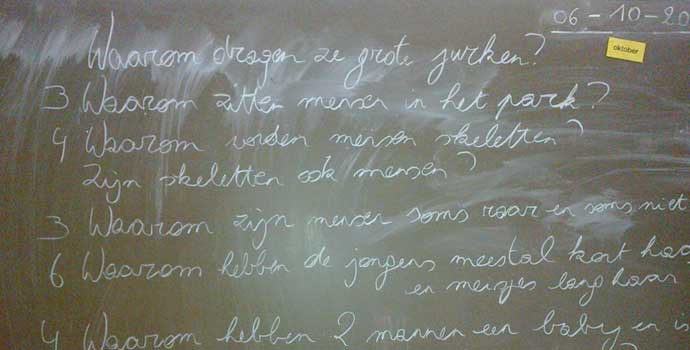 06 - 10 - 20
oktober
Waarom dragen ze grote jurken?
3 Waarom zitten mensen in het park?
4 Waarom worden mensen skeletten?
Zijn skeletten ook mensen?
3 Waarom zijn mensen soms raar en soms niet
6 Waarom hebben de jongens meestal kort haa
en meisjes lang haar
4 Waarom hebben 2 mannen een baby en is